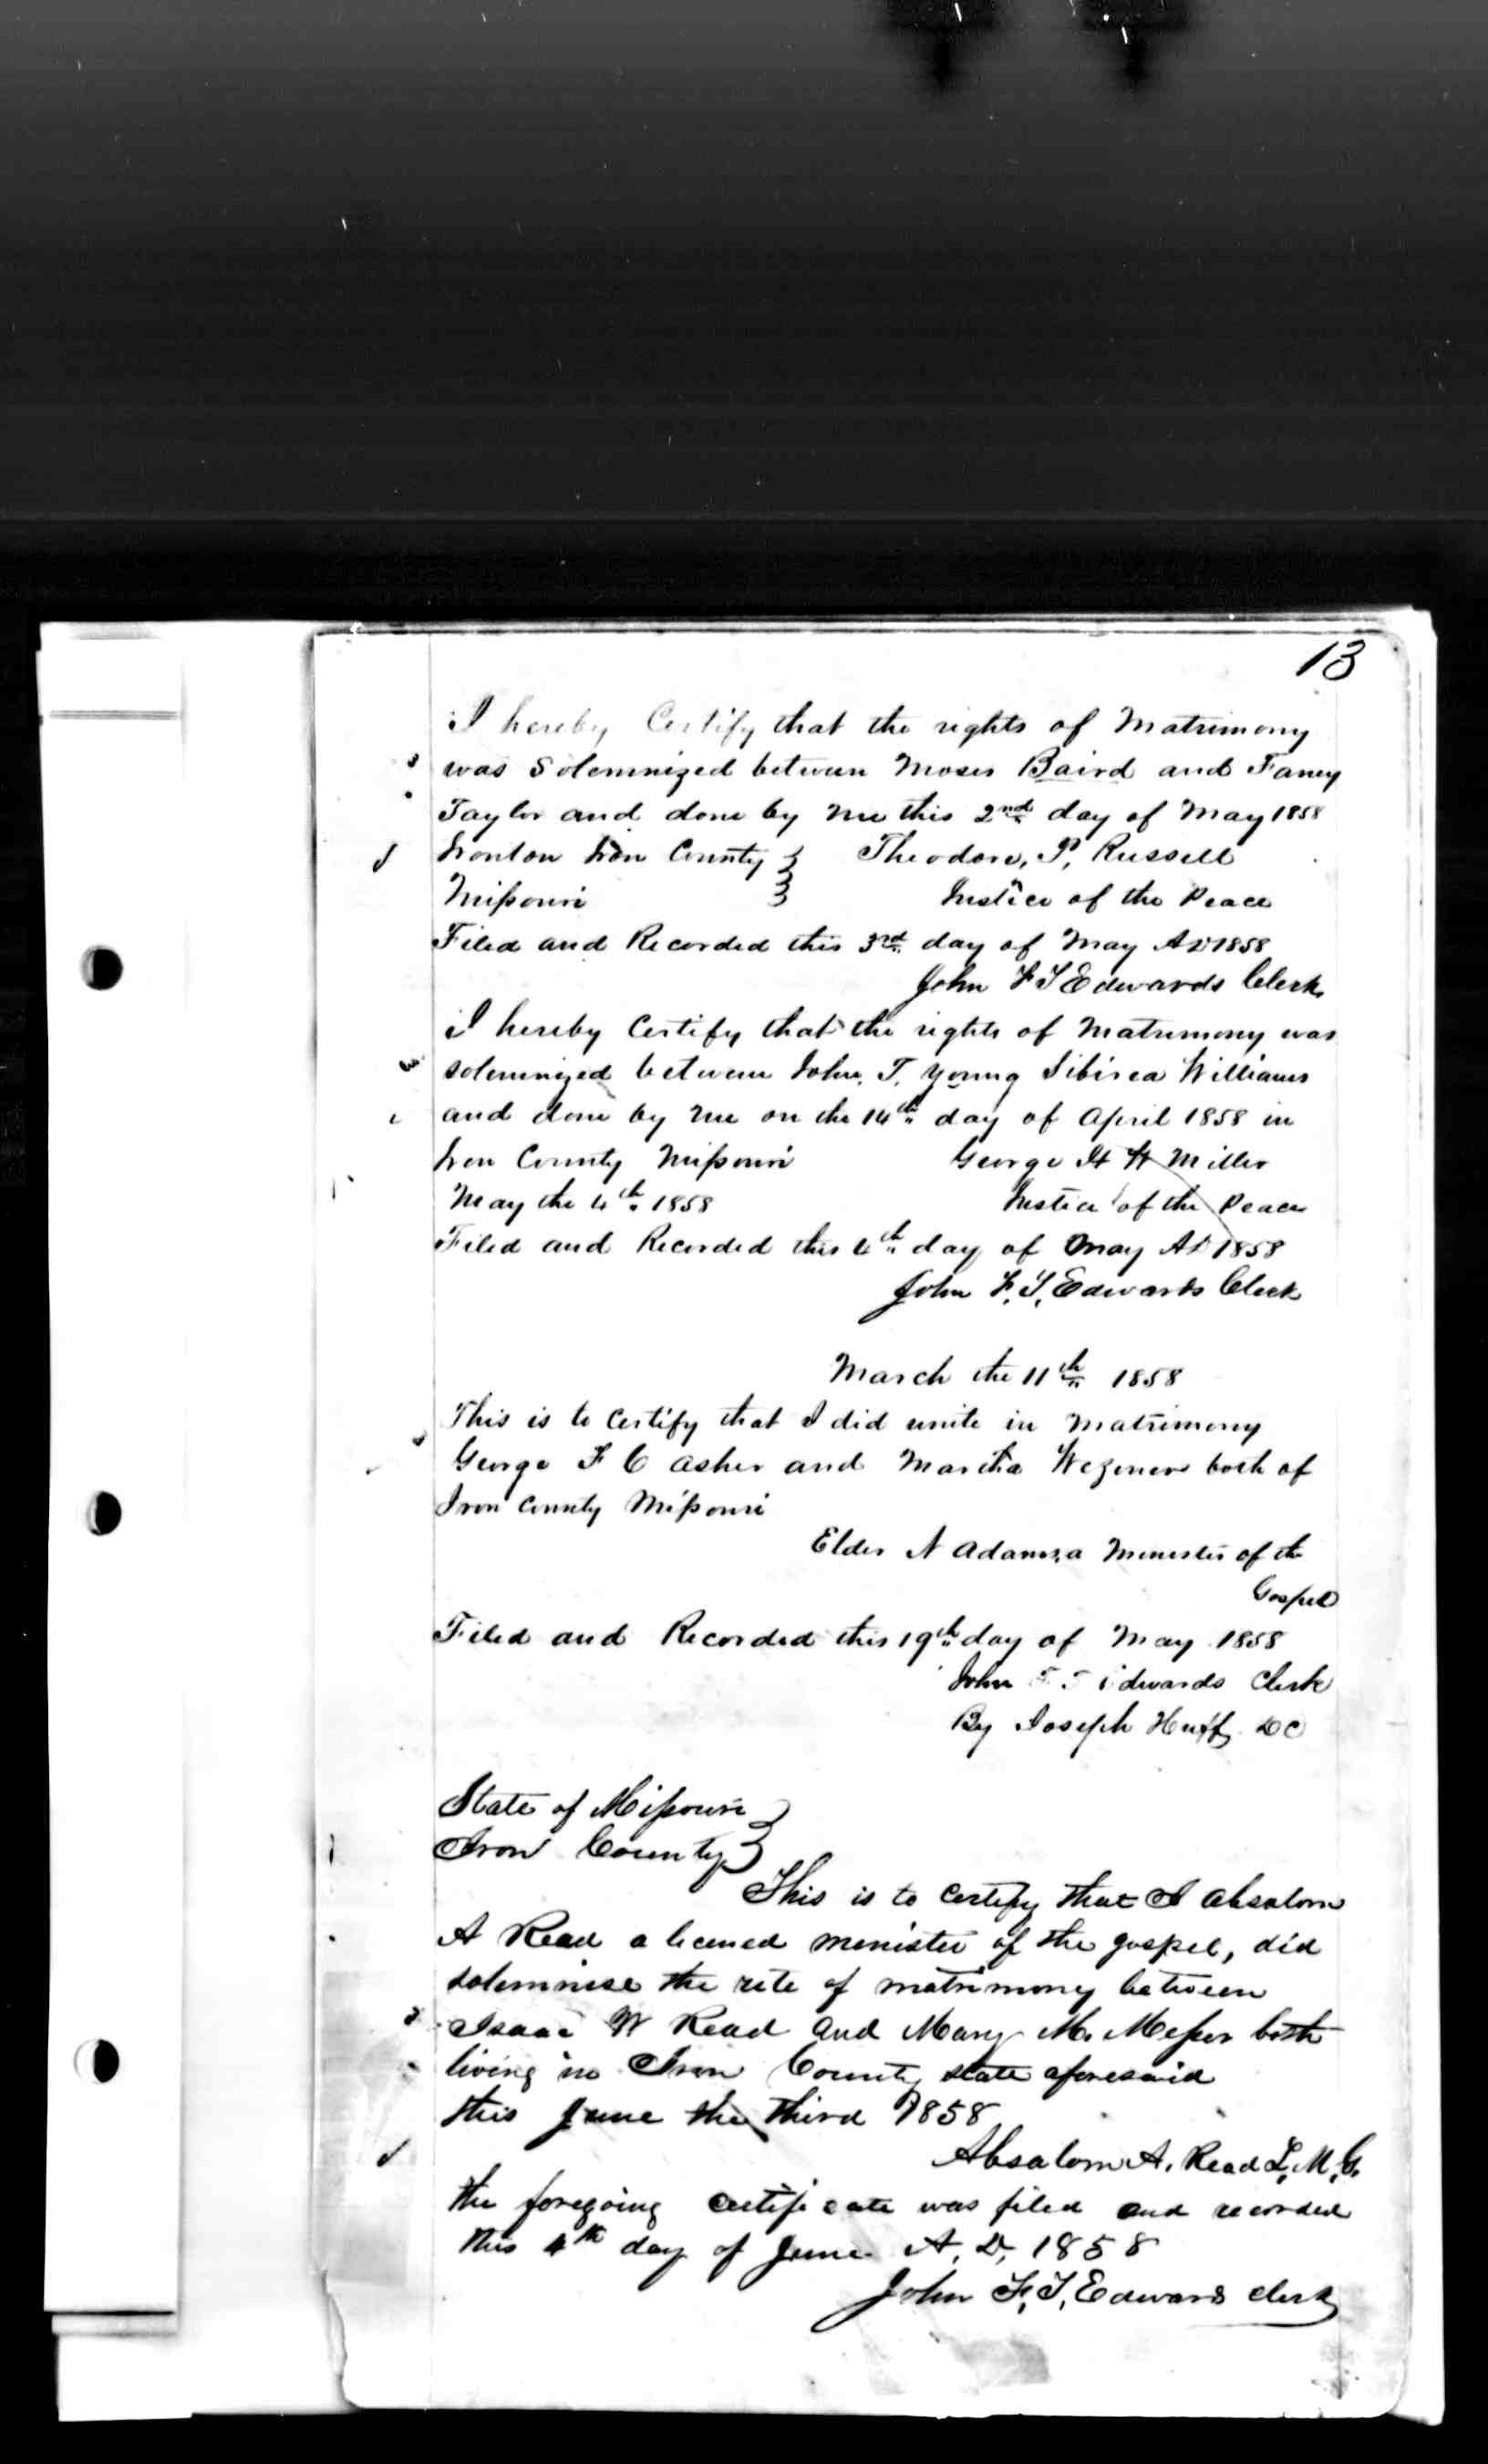 13
I hereby Certify that the rights of Matrimony
was Solemnized between Moses Baird and Faney
Taylor and done by me this 2nd day of May 1858
Ironton Iron County } Theodore, P, Russell
Missouri } Justice of the Peace
Filed and Recorded this 3rd day of May AD 1858
John F T Edwards Clerk
I hereby Certify that the rights of Matrimony was
solemnized between John. T. Young Sibirea Williams
and done by me on the 14th day of April 1858 in
Iron County Missouri George H W Miller
May the 4th 1858 Justice of the Peace
Filed and Recorded this 4th day of May AD 1858
John F, T, Edwards Clerk
March the 11th 1858
This is to Certify that I did unite in Matrimony
George F C Asher and Martha both of
Iron County Missouri
Elder N Adams, a Minester of the
Gospel
Filed and Recorded this 19th day of May 1858
John F T Edwards Clerk
By Joseph Huff DC
State of Missouri }
Iron County }
This is to certify that I Absalom
A Read a licened menister of the gospel, did
solemnise the rite of matrimony between
Isaac W Read and Mary M. Messer both
living in Iron County state aforesaid
this June the third 1858
Absalom A. Read L. M. G.
the foregoing certificate was filed and recorded
this 4th day of June A, D, 1858
John F, T, Edwards clerk